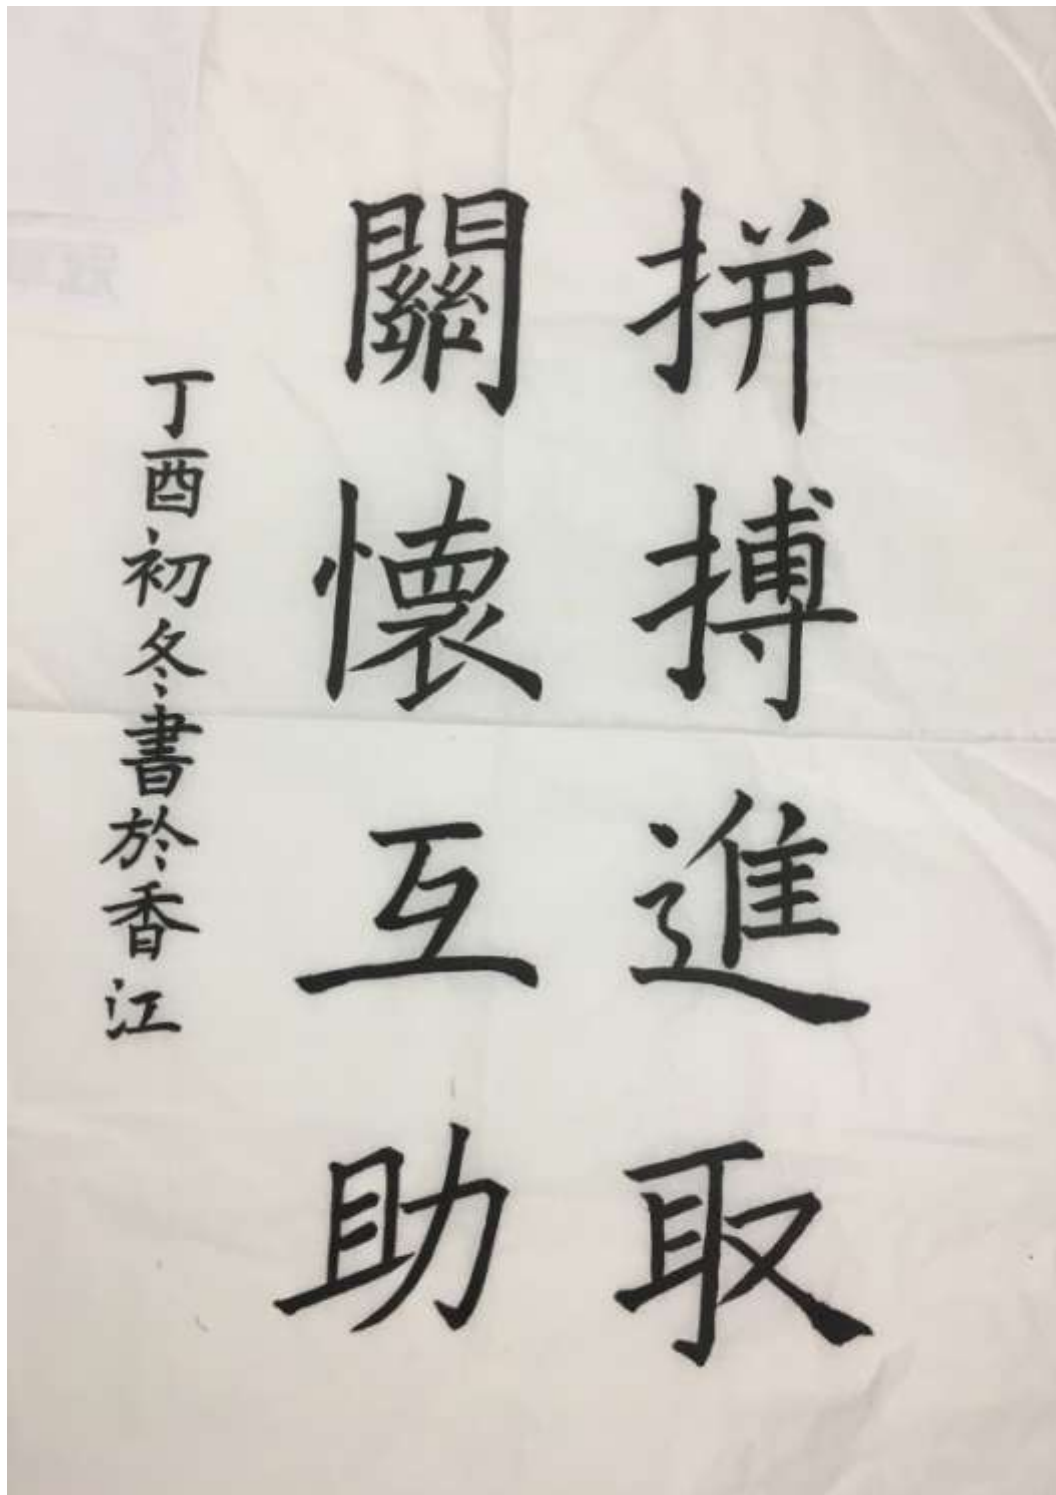 拼搏進取
關懷互助
丁酉初冬書於香江